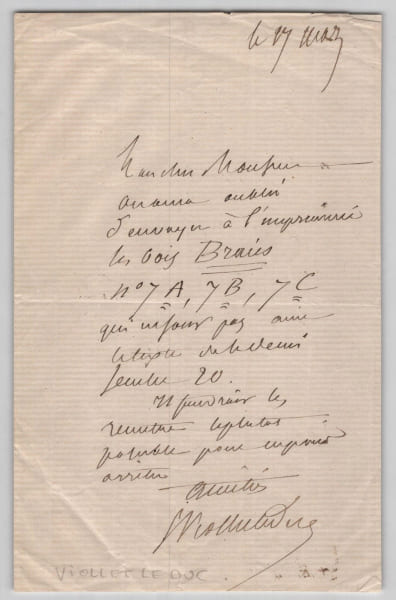 le 17 mars
Mon cher Monsieur
on aura oublié
d'envoyer à l'imprimerie
les bois Braies
nº 7 A, 7 B, 7 C
qui ne sont pas avec
le texte de la demi
feuille 20.
Il faudrait les
remettre le plutot
possible pour ne pas
arrêter
Amitiés
Viollet Le Duc
VIOLLET LE DUC